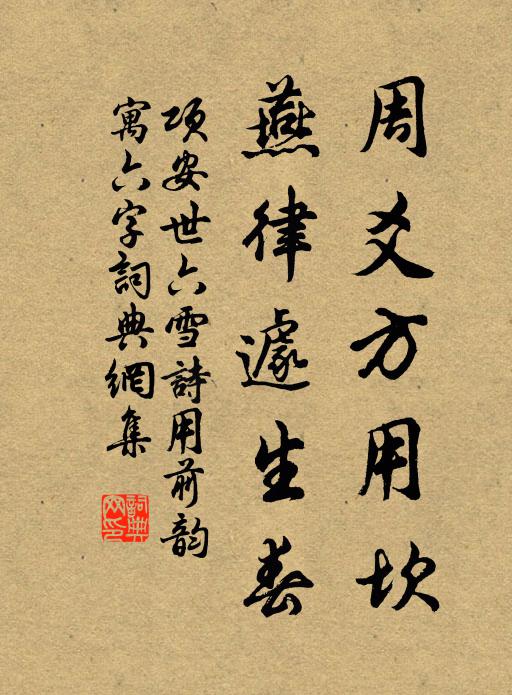 周爻方用坎
燕律遽生春
項安世六雪詩用前韵
寓六字詞典網集
詞典网印